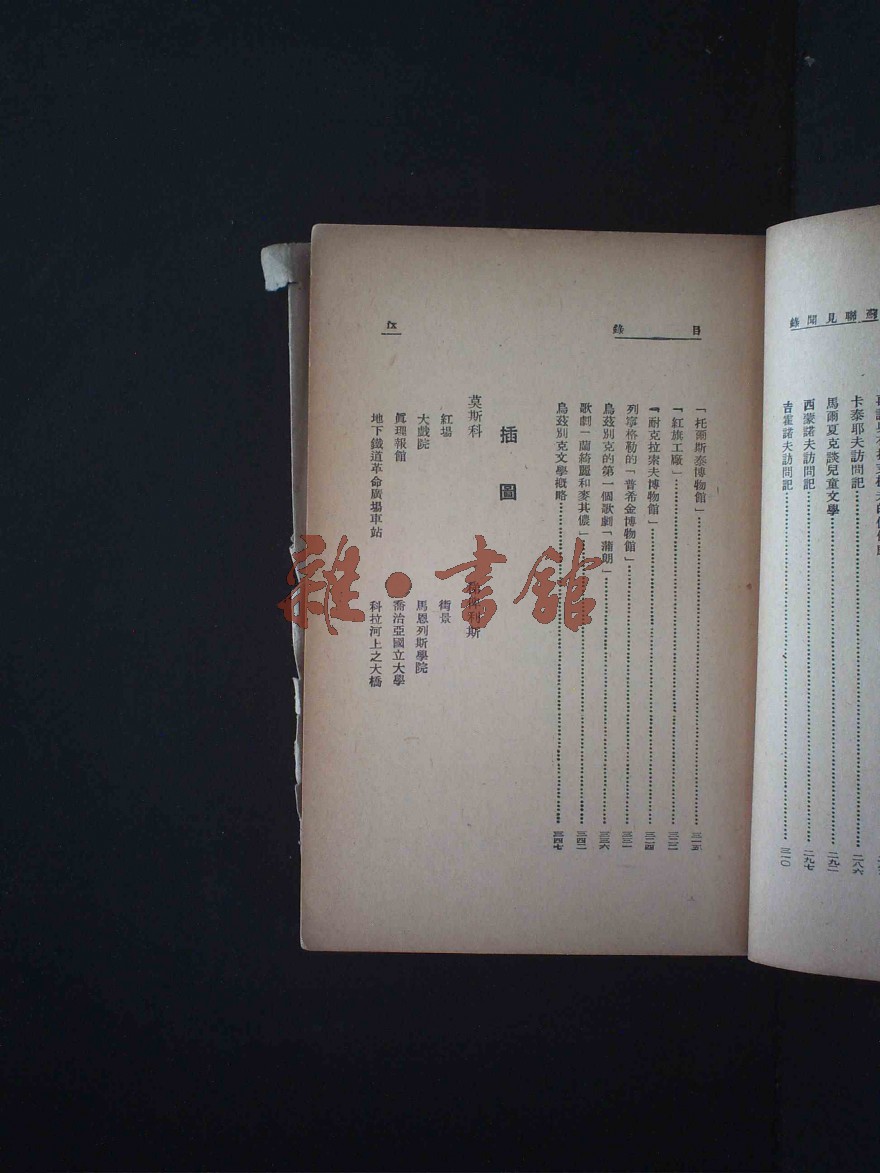 蘇聯見聞錄
卡泰耶夫訪問記……二八六
馬爾夏克談兒童文學……二九二
西蒙諾夫訪問記……二九七
吉霍諾夫訪問記……三一〇
目錄
「托爾斯泰博物館」……三一五
「紅旗工廠」……三二二
「耐克拉索夫博物館」……三二四
列寧格勒的「普希金博物館」……三三一
烏茲別克的第一個歌劇「蒲朗」……三三六
歌劇「蘭綺麗和麥其儂」……三四二
烏茲別克文學概略……三四七
插圖
莫斯科
紅場
大戲院
眞理報館
地下鐵道革命廣場車站
利斯
街景
馬恩列斯學院
喬治亞國立大學
科拉河上之大橋
雜·書館